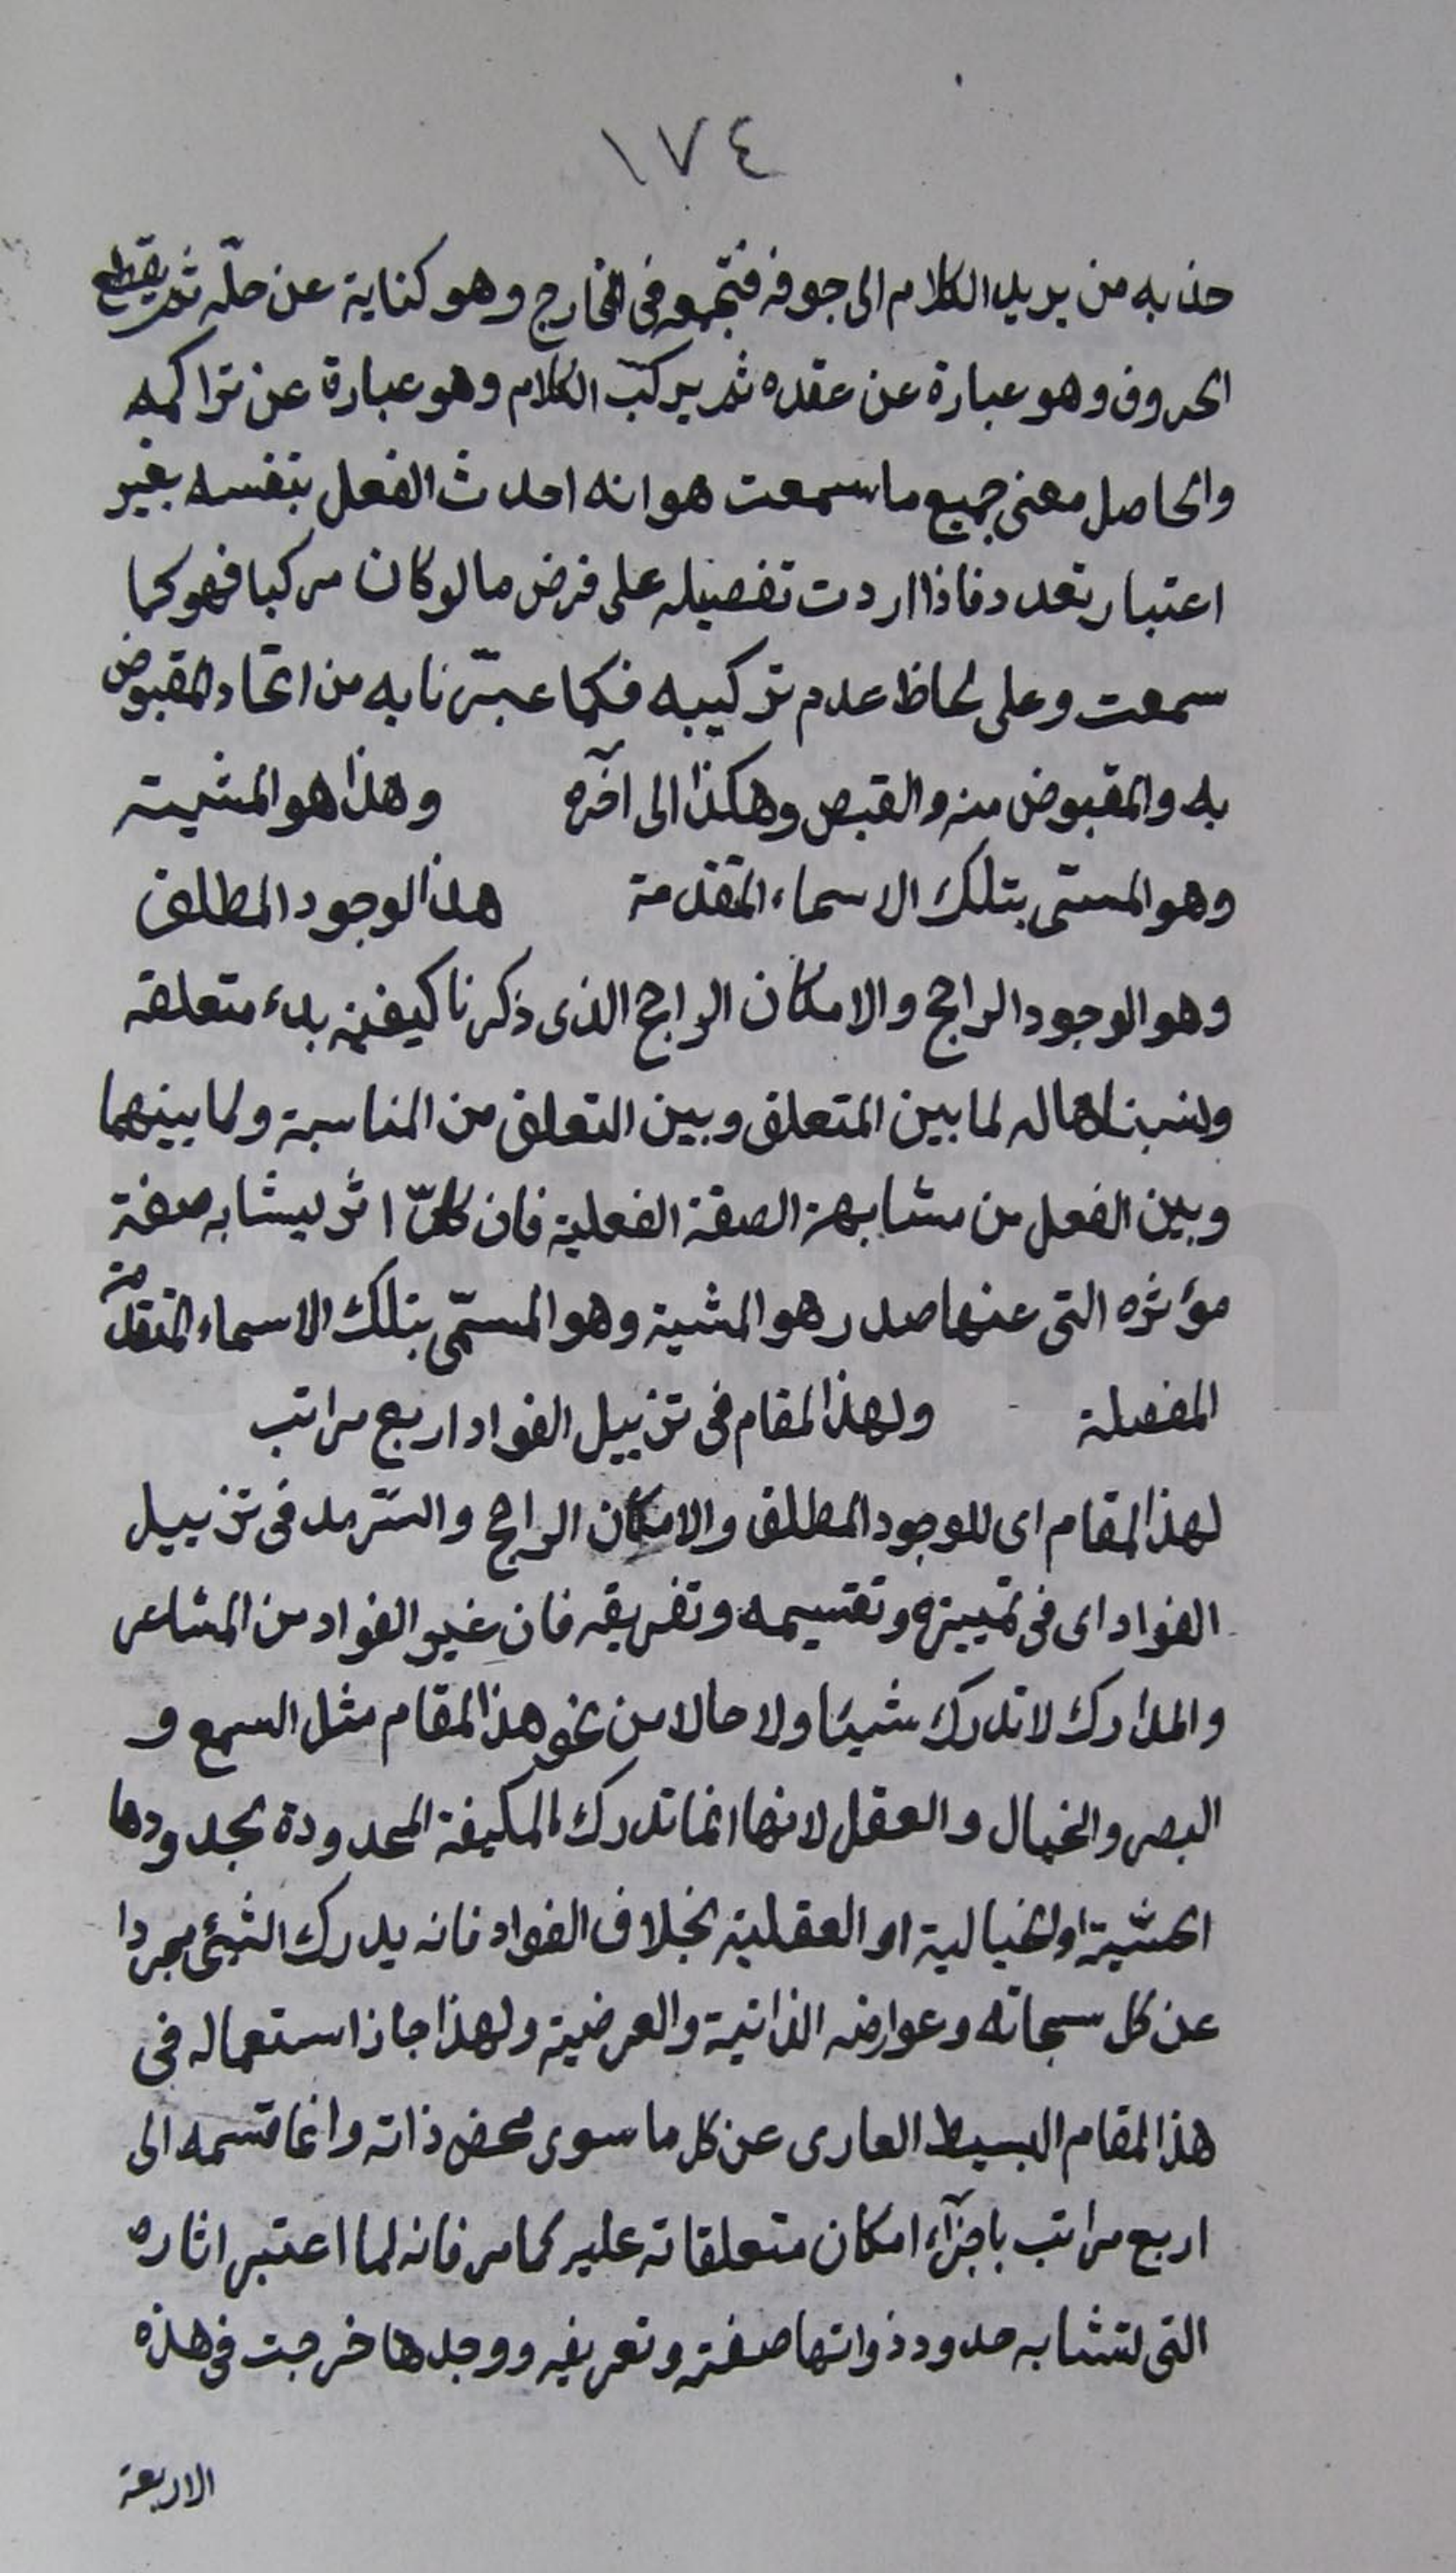 ١٧٤
حذبه من يريد الكلام الى جوفه فتجمعه فى المخارج وهو كناية عن حلّه ثم يقطع
الحروف وهو عبارة عن عقده ثم يركّب الكلام وهو عبارة عن تراكمه
والحاصل معنى جميع ما سمعت هو انه احدث الفعل بنفسه بغير
اعتبار تعدد فاذا اردت تفصيله على فرض ما لو كان مركبا فهو كما
سمعت وعلى لحاظ عدم تركيبه فكما عبّرنا به من اتحاد المقبوض
به والمقبوض منه والقبض وهكذا الى آخره وهذا هو المشية
وهو المسمّى بتلك الاسماء المتقدمة هذا الوجود المطلق
وهو الوجود الراجح والامكان الراجح الذى ذكرنا كيفية بدء متعلقه
ونسبناها له لما بين المتعلق وبين التعلق من المناسبة ولما بينهما
وبين الفعل من مشابهة الصفة الفعلية فان كلّ اثر يشابه صفة
مؤثره التى عنها صدر هو المشية وهو المسمّى بتلك الاسماء المتقدمة
المفصلة ولهذا المقام فى تزييل الفواد اربع مراتب
لهذا المقام اى للوجود المطلق والامكان الراجح والسّرمد فى تزييل
الفواد اى فى تمييزه وتقسيمه وتفريقه فان غير الفواد من المشاعر
والمدارك لا تدرك شيئا ولا حالا من نحو هذا المقام مثل السمع و
البصر والخيال والعقل لانها انما تدرك المكيفة المحدودة بحدودها
الحسّية او الخيالية او العقلية بخلاف الفواد فانه يدرك الشيئ مجردا
عن كل سبحاته وعوارضه الذاتية والعرضية ولهذا جاز استعماله فى
هذا المقام البسيط العارى عن كل ما سوى محض ذاته وانما قسمه الى
اربع مراتب باجزآء امكان متعلقاته عليه كما مر فانه لما اعتبر اثاره
التى تشابه حدود ذواتها صفته وتعريفه ووجدها خرجت فى هذه
الاربعة